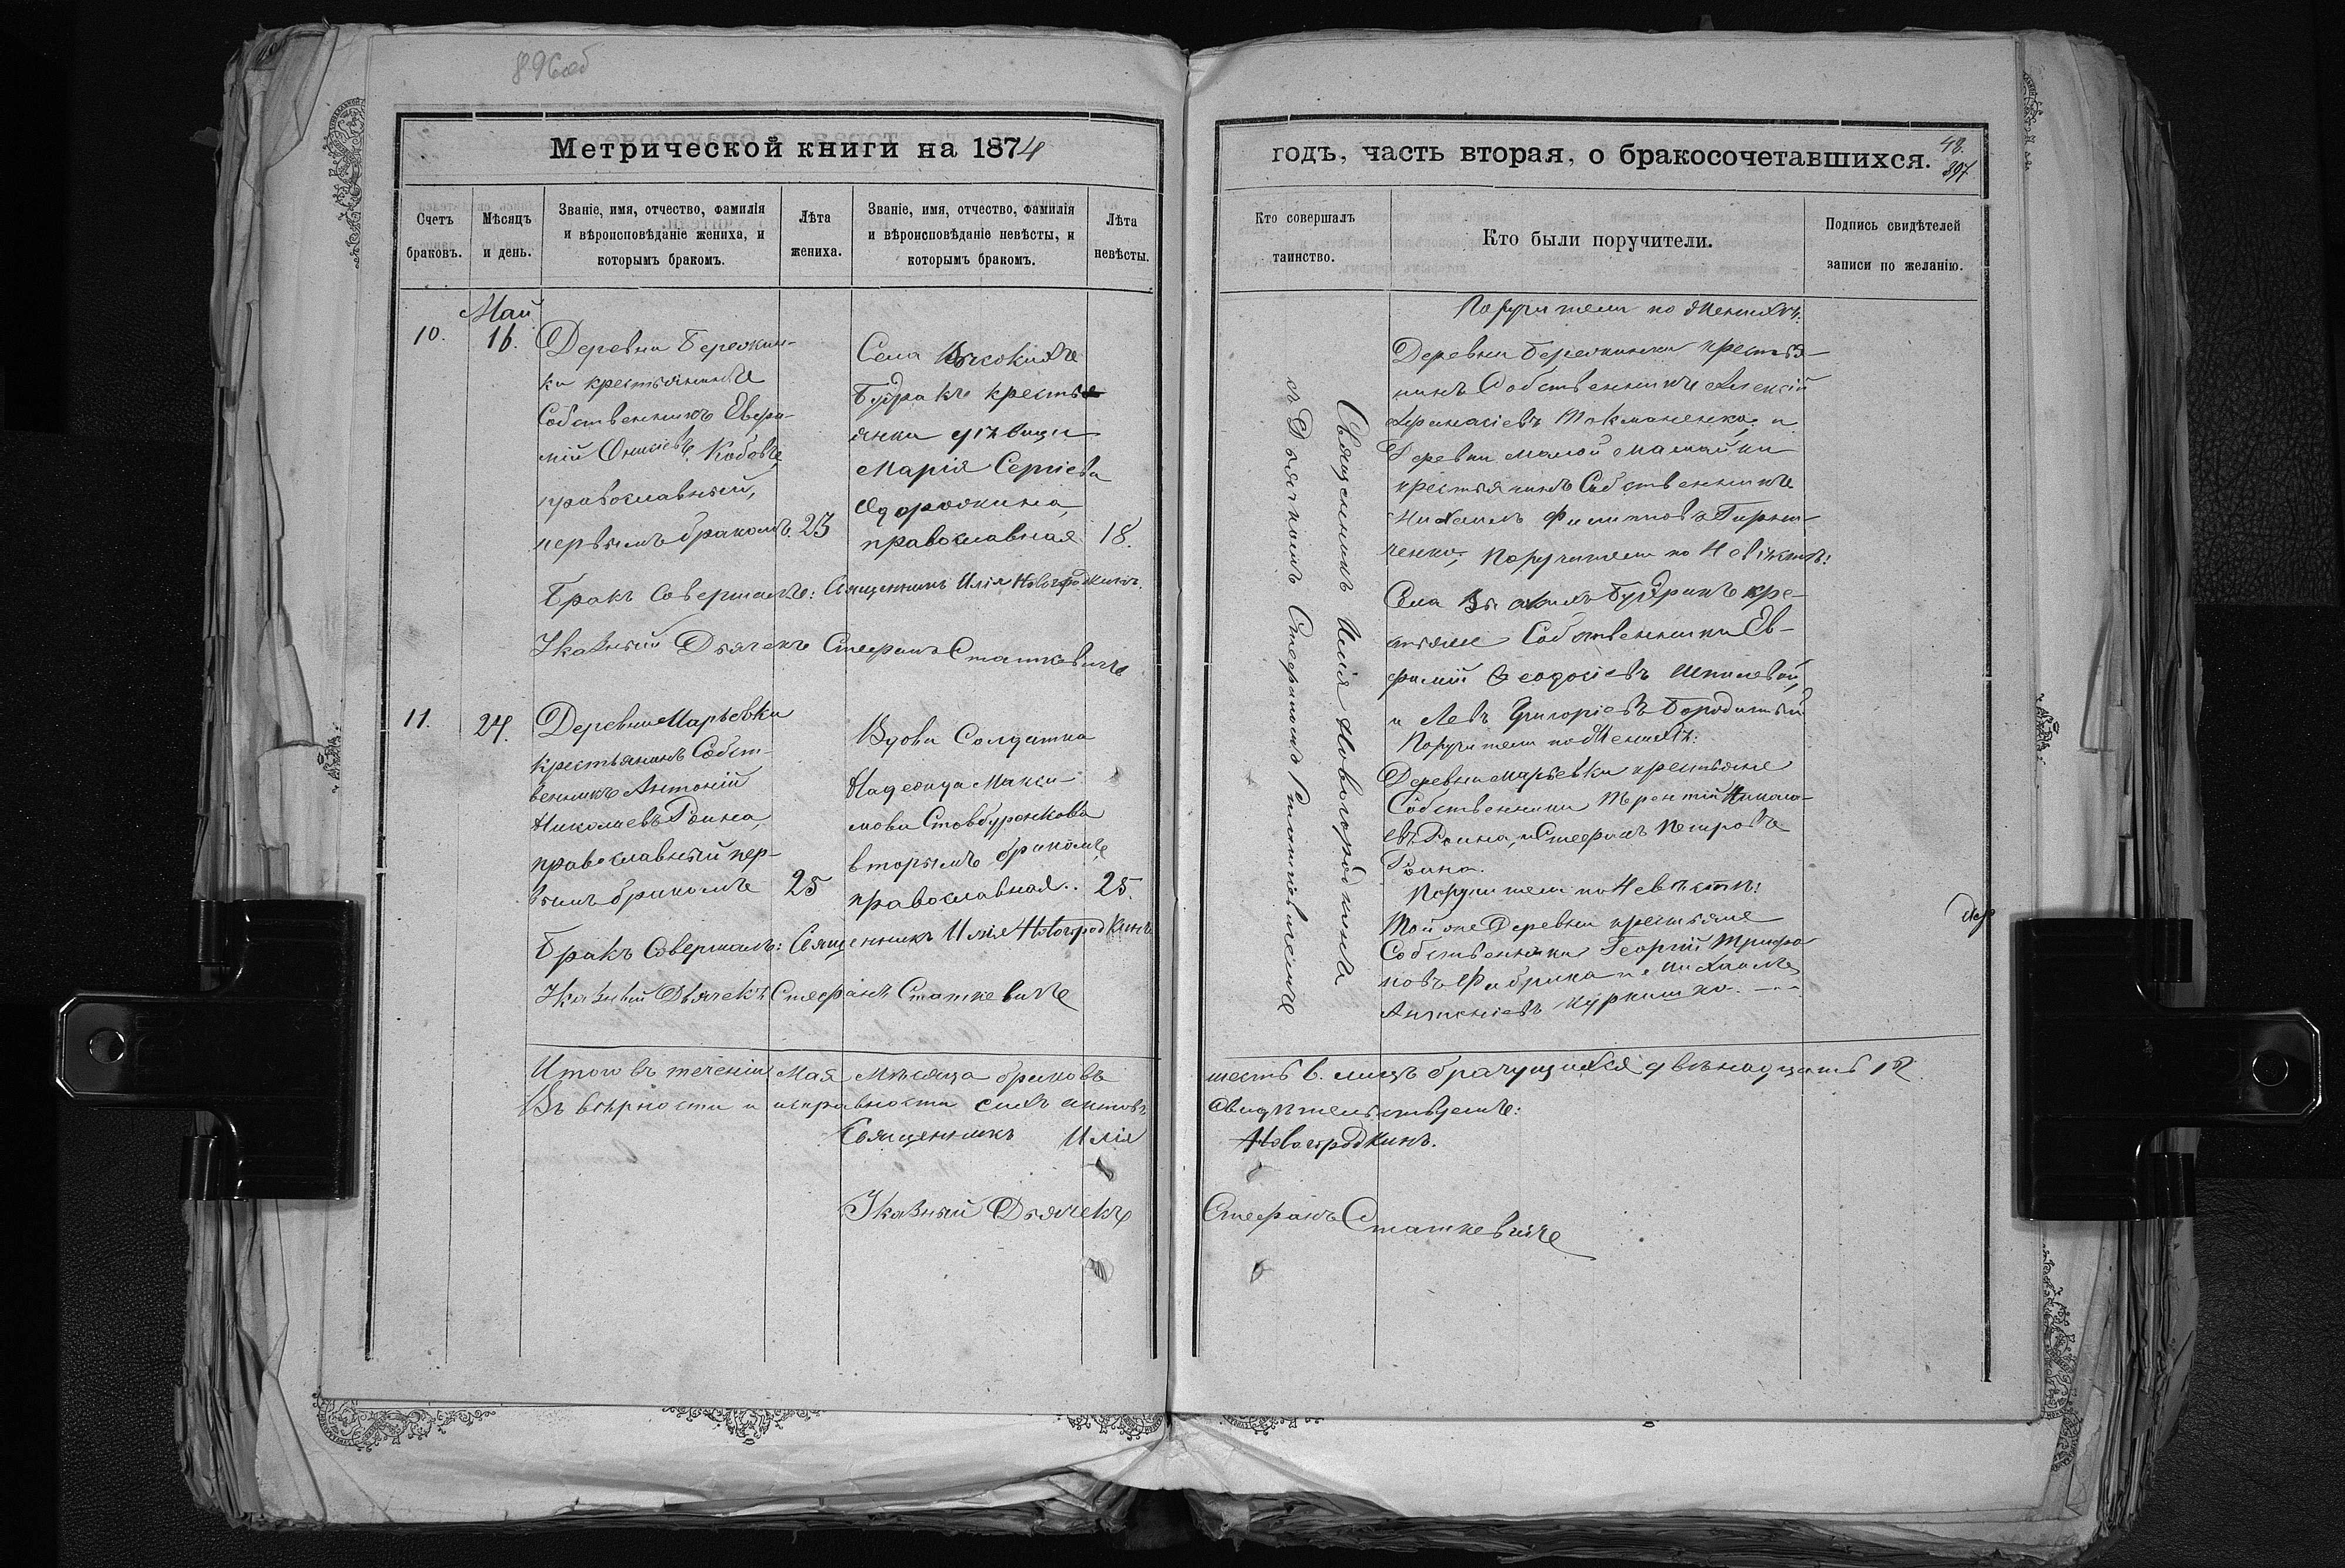 896об
Метрической книги на 1874
Счетъ браковъ.
Мѣсяцъ и день.
Званіе, имя, отчество, фамилія и вѣроисповѣданіе жениха, и которымъ бракомъ.
Лѣта жениха.
Званіе, имя, отчество, фамилія и вѣроисповѣданіе невѣсты, и которымъ бракомъ.
Лѣта невѣсты.
Май
10.
16.
Деревни Бережин-
ки крестьянинъ
Собственникъ Евфи-
мій Онисіевъ Кобовъ,
православный,
первымъ бракомъ.
23
Села Высокихъ
Буеракъ крестья
янка дѣвица
Марія Сергіева
православная
18.
Бракъ Совершалъ: Священникъ Илія Новогродкинъ.
Указный Дьячекъ Стефанъ Статкевичъ
11.
24.
Деревни Марьевки
крестьянинъ Собст-
венникъ Антоній
Николаевъ Роина,
православный пер-
вымъ бракомъ
25
Вдова Солдатка
Надежда Макси-
мова Стовбуренкова
вторымъ бракомъ,
православная..
25.
Бракъ Совершалъ: Священникъ Илія Новогродкинъ
Указный Дьячекъ Стефанъ Статкевичъ
Итого въ теченіи Мая Мѣсяца браковъ
Въ вѣрности и исправности сихъ актовъ
Священникъ Илія
Указный Дьячекъ
годъ, часть вторая, о бракосочетавшихся.
48.
897
Кто совершалъ таинство.
Кто были поручители.
Подпись свидѣтелей записи по желанію.
Священникъ Илія Новогородкинъ
съ Дьячкомъ Стефаномъ
Поручители по Женихѣ:
Деревни Бережинки крестья-
нинъ Собственникъ Алексій
Афанасіевъ Токманенко, и
Деревни Малой Мамайки
крестьянинъ Собственникъ
Михаилъ Филиповъ
ченко, Поручители по Невѣстѣ:
Села Высокихъ Буеракъ кре-
стьяне Собственники Ев-
фимій Феодосіевъ Шпилевой,
и Левъ Григоріевъ
Поручители по Женихѣ:
Деревни Марьевки крестьяне
Собственники Терентій Никола-
евъ Роина, и Стефанъ Петровъ
Роина.
Поручители по Невѣстѣ:
Той же Деревни крестьяне
Собственники Георгій Трифо
новъ Фабрика и Михаилъ
шесть 6. лицъ брачущихся двѣнадцать 12.
Свидѣтельствуемъ:
Новогродкинъ.
Стефанъ Статкевичъ